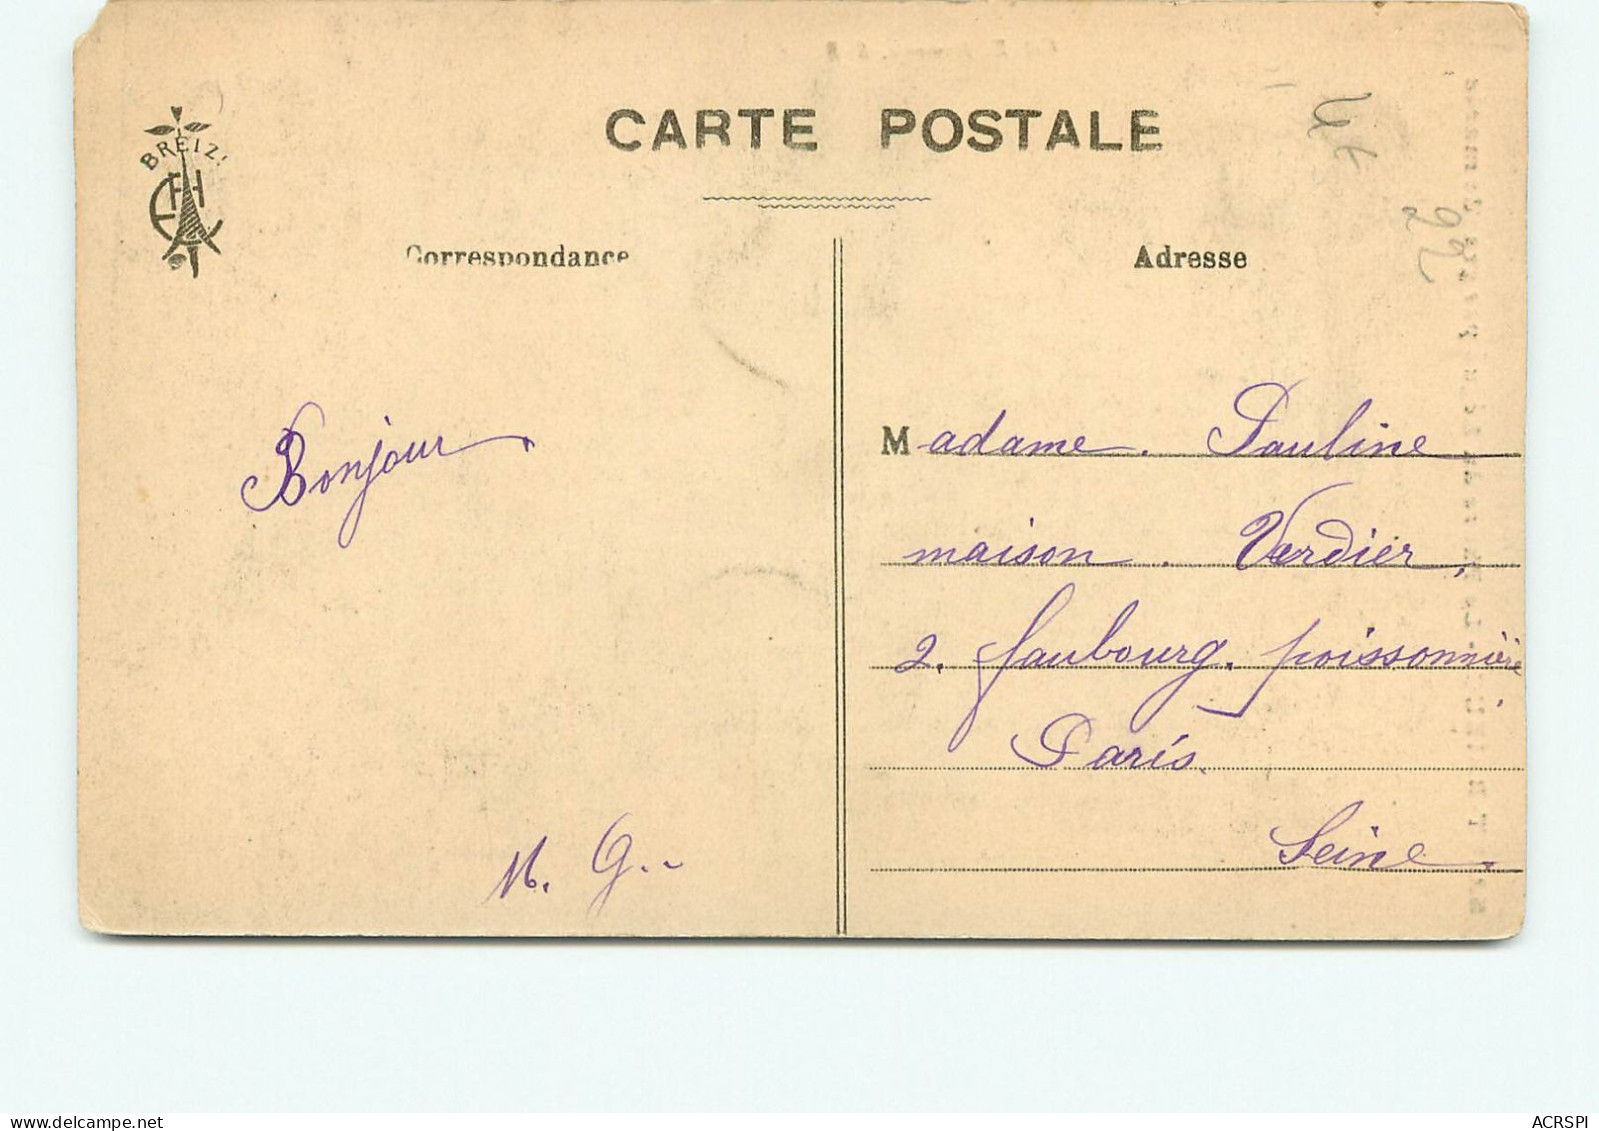 BREIZ!
CARTE POSTALE
Correspondance
Adresse
Bonjour.
M. G.-
Madame. Pauline
maison. Verdier,
2. faubourg. poissonnière,
Paris.
Seine.
22
ACRSPI